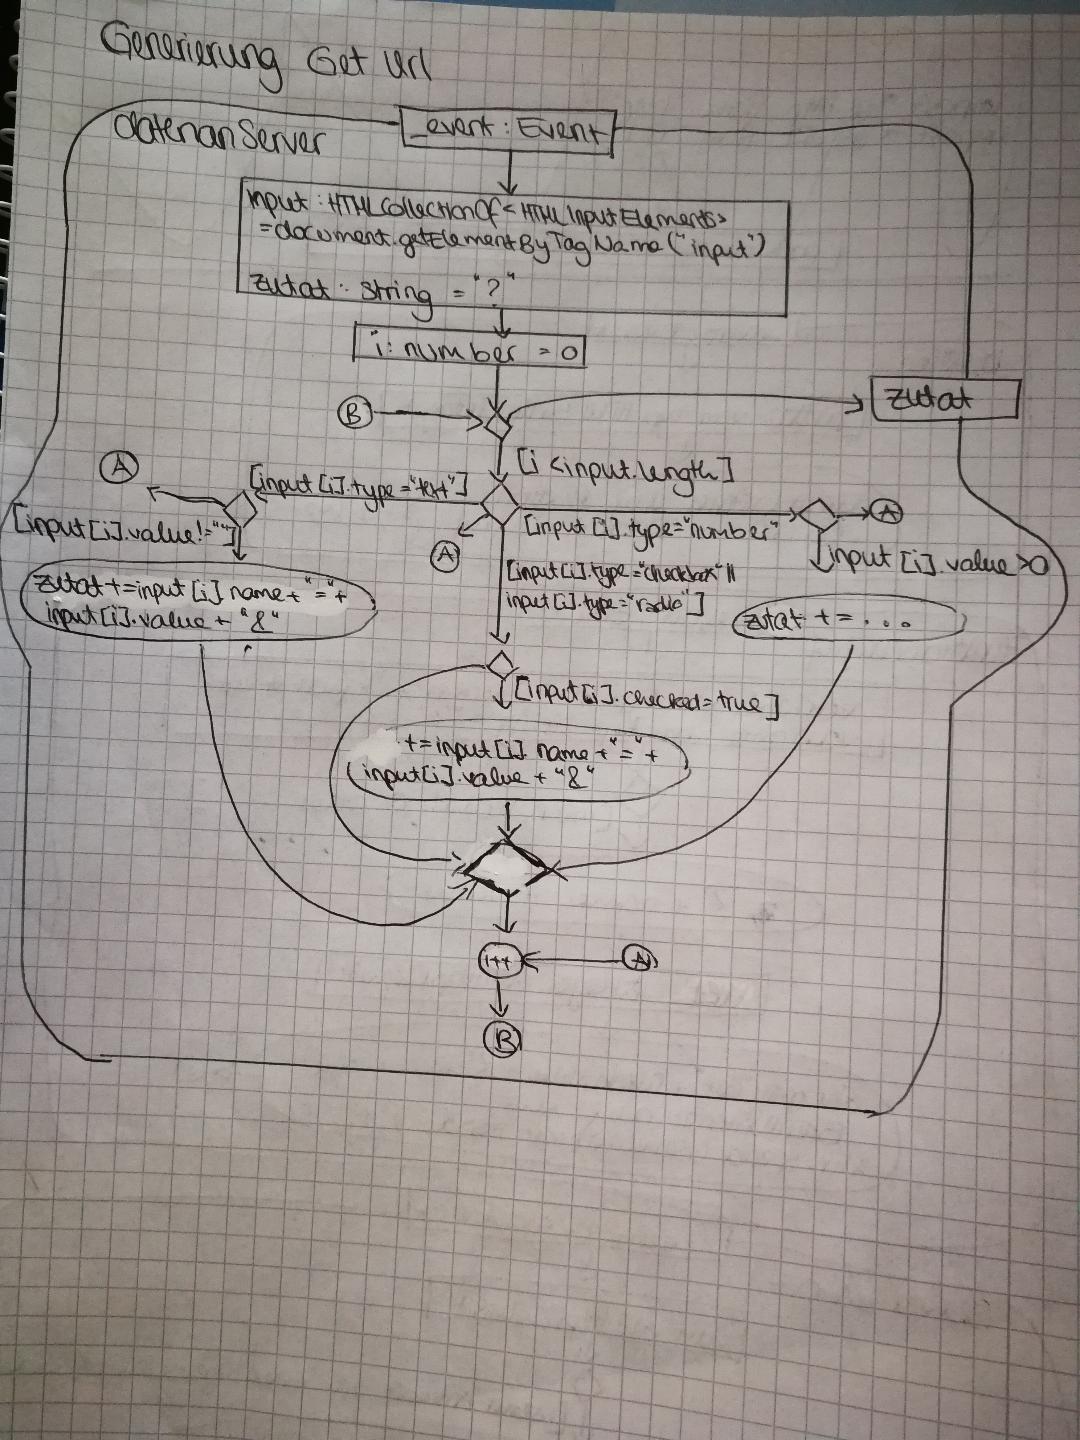 Generierung Get Url
datenanServer
_event : Event
input : HTMLCollectionOf<HTMLInputElements>
=document.getElementByTagName("input")
zutat : string = "?"
i: number = 0
B
zutat
[i <input.length]
A
[input[i].type="text"]
[input[i].type="number"
A
[input[i].value!=""]
A
input [i].value>0
[input[i].type="checkbox"||
input[i].type="radio"]
zutat+=input[i].name+"="+
input[i].value + "&"
zutat += ...
[input[i].checked=true]
+=input[i].name+"="+
input[i].value + "&"
i++
A
B